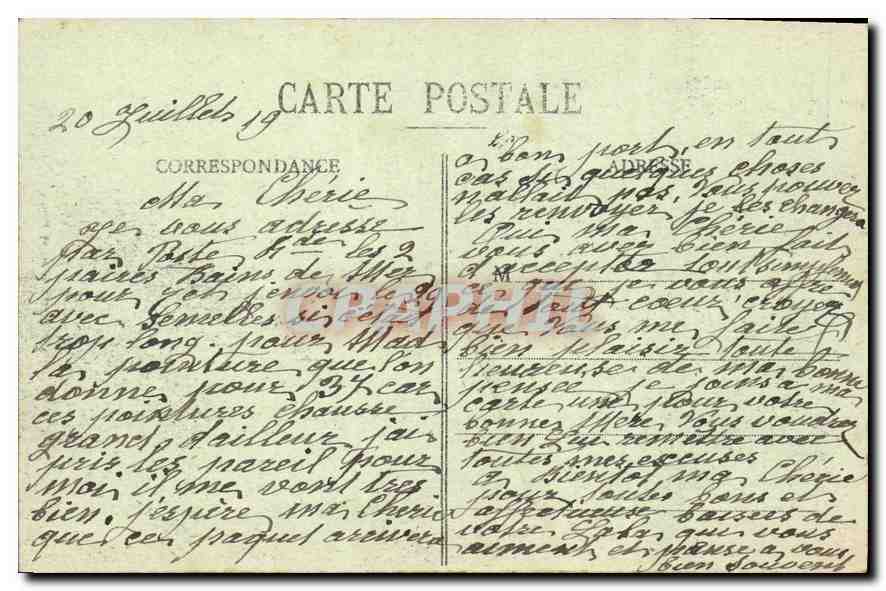 CARTE POSTALE
20 Juillet 19
CORRESPONDANCE
Ma Cherie
Je vous adresse
par Poste les 2
paires Bains de Mer
pour j'envoi le 29
avec Semelles si c'était
trop long. pour Mad
la pointure que l'on
donne pour 37 car
ces pointures chausse
grand dailleur j'ai
pris les pareil pour
moi il me vont tres
bien. j'espère ma Cherie
que ce paquet arivera
a bon port, en tout
ADRESSE
cas si quelques choses
nallait pas. Vous pouvez
les renvoyer je les changera
Oui ma Chérie
vous avez bien fait
d'accepter tout simplement
M
ce que je vous offre
de tout coeur croyez
que vous me faite
bien plaisir toute
heureuse de ma bonne
pensée je joins a ma
carte une pour votre
bonne Mère Vous voudrez
bien lui remettre avec
toutes mes excuses
a Bientot ma Chérie
pour toutes bons et
affectueuse baisees de
votre Lola qui vous
aiment et panse a vous
bien souvent
CPAPHIL